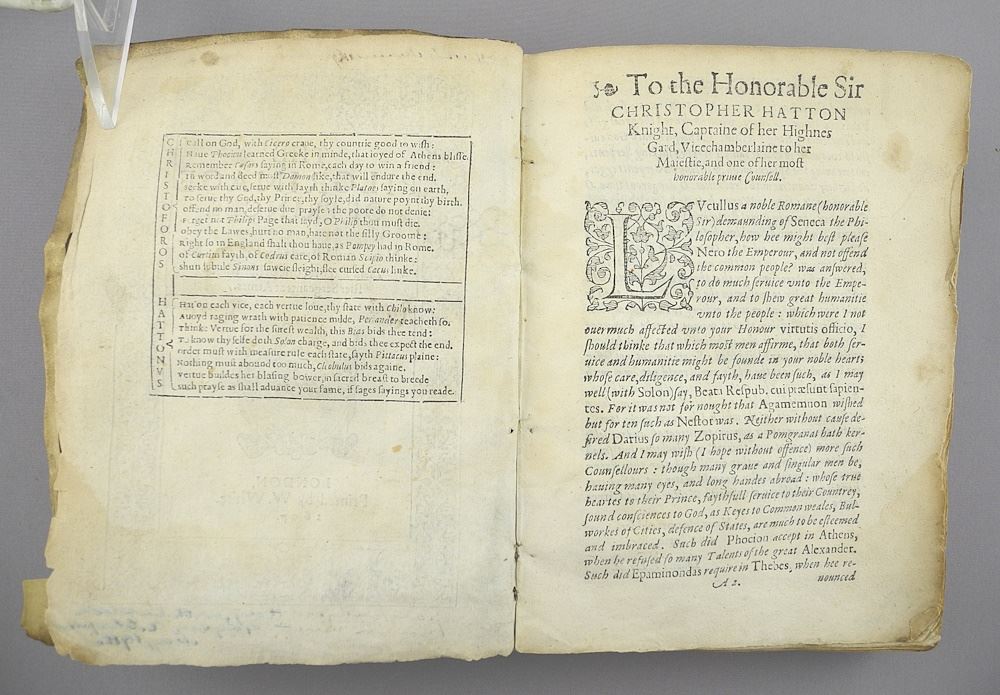 CHRISTOFORUS
Call on God, with Cicero craue, thy countrie good to wish:
Haue Phocions learned Greeke in minde, that ioyed of Athens blisse.
Remember Cæsars saying in Rome, each day to win a friend:
In word and deed must Damon like, that will endure the end.
Seeke with care, serue with fayth thinke Platoes saying on earth,
To serue thy God, thy Prince, thy soyle, did nature poynt thy birth.
offend no man, deserue due prayse: the poore do not denie:
Forget not Philips Page that sayd, O Philip thou must die.
obey the Lawes, hurt no man, hate not the silly Groome:
Right so in England shalt thou haue, as Pompey had in Rome.
of Curtius fayth, of Codrus care, of Roman Scipio thinke:
shun subtile Sinons sawcie sleight, flee cursed Cacus linke.
HATTONVS
Hat'on each vice, each vertue loue, thy state with Chilo know:
Auoyd raging wrath with patience milde, Periander teacheth so.
Thinke Vertue for the surest wealth, this Bias bids thee tend:
To know thy selfe doth Solon charge, and bids thee expect the end.
order must with measure rule each state, sayth Pittacus plaine:
Nothing must abound too much, Cleobulus bids againe.
Vertue buildes her blasing bower, in sacred breast to breede
such prayse as shall aduance your fame, if sages sayings you reade.
To the Honorable Sir
CHRISTOPHER HATTON
Knight, Captaine of her Highnes
Gard, Vicechamberlaine to her
Maiestie, and one of her most
honorable priuie Counsell.
LVcullus a noble Romane (honorable
Sir) demaunding of Seneca the Phi-
losopher, how hee might best please
Nero the Emperour, and not offend
the common people? was answered,
to do much seruice vnto the Empe-
rour, and to shew great humanitie
vnto the people: which were I not
ouer much affected vnto your Honour virtutis officio, I
should thinke that which most men affirme, that both ser-
uice and humanitie might be founde in your noble heart;
whose care, diligence, and fayth, haue been such, as I may
well (with Solon) say, Beata Respub. cui præsunt sapien-
tes. For it was not for nought that Agamemnon wished
but for ten such as Nestor was. Neither without cause de-
sired Darius so many Zopirus, as a Pomgranat hath ker-
nels. And I may wish (I hope without offence) more such
Counsellours: though many graue and singular men be,
hauing many eyes, and long handes abroad: whose true
heartes to their Prince, faythfull seruice to their Countrey,
sound consciences to God, as Keyes to Common weales, Bul-
workes of Cities, defence of States, are much to be esteemed
and imbraced. Such did Phocion accept in Athens,
when he refused so many Talents of the great Alexander.
Such did Epaminondas require in Thebes, when hee re-
A 2. nounced